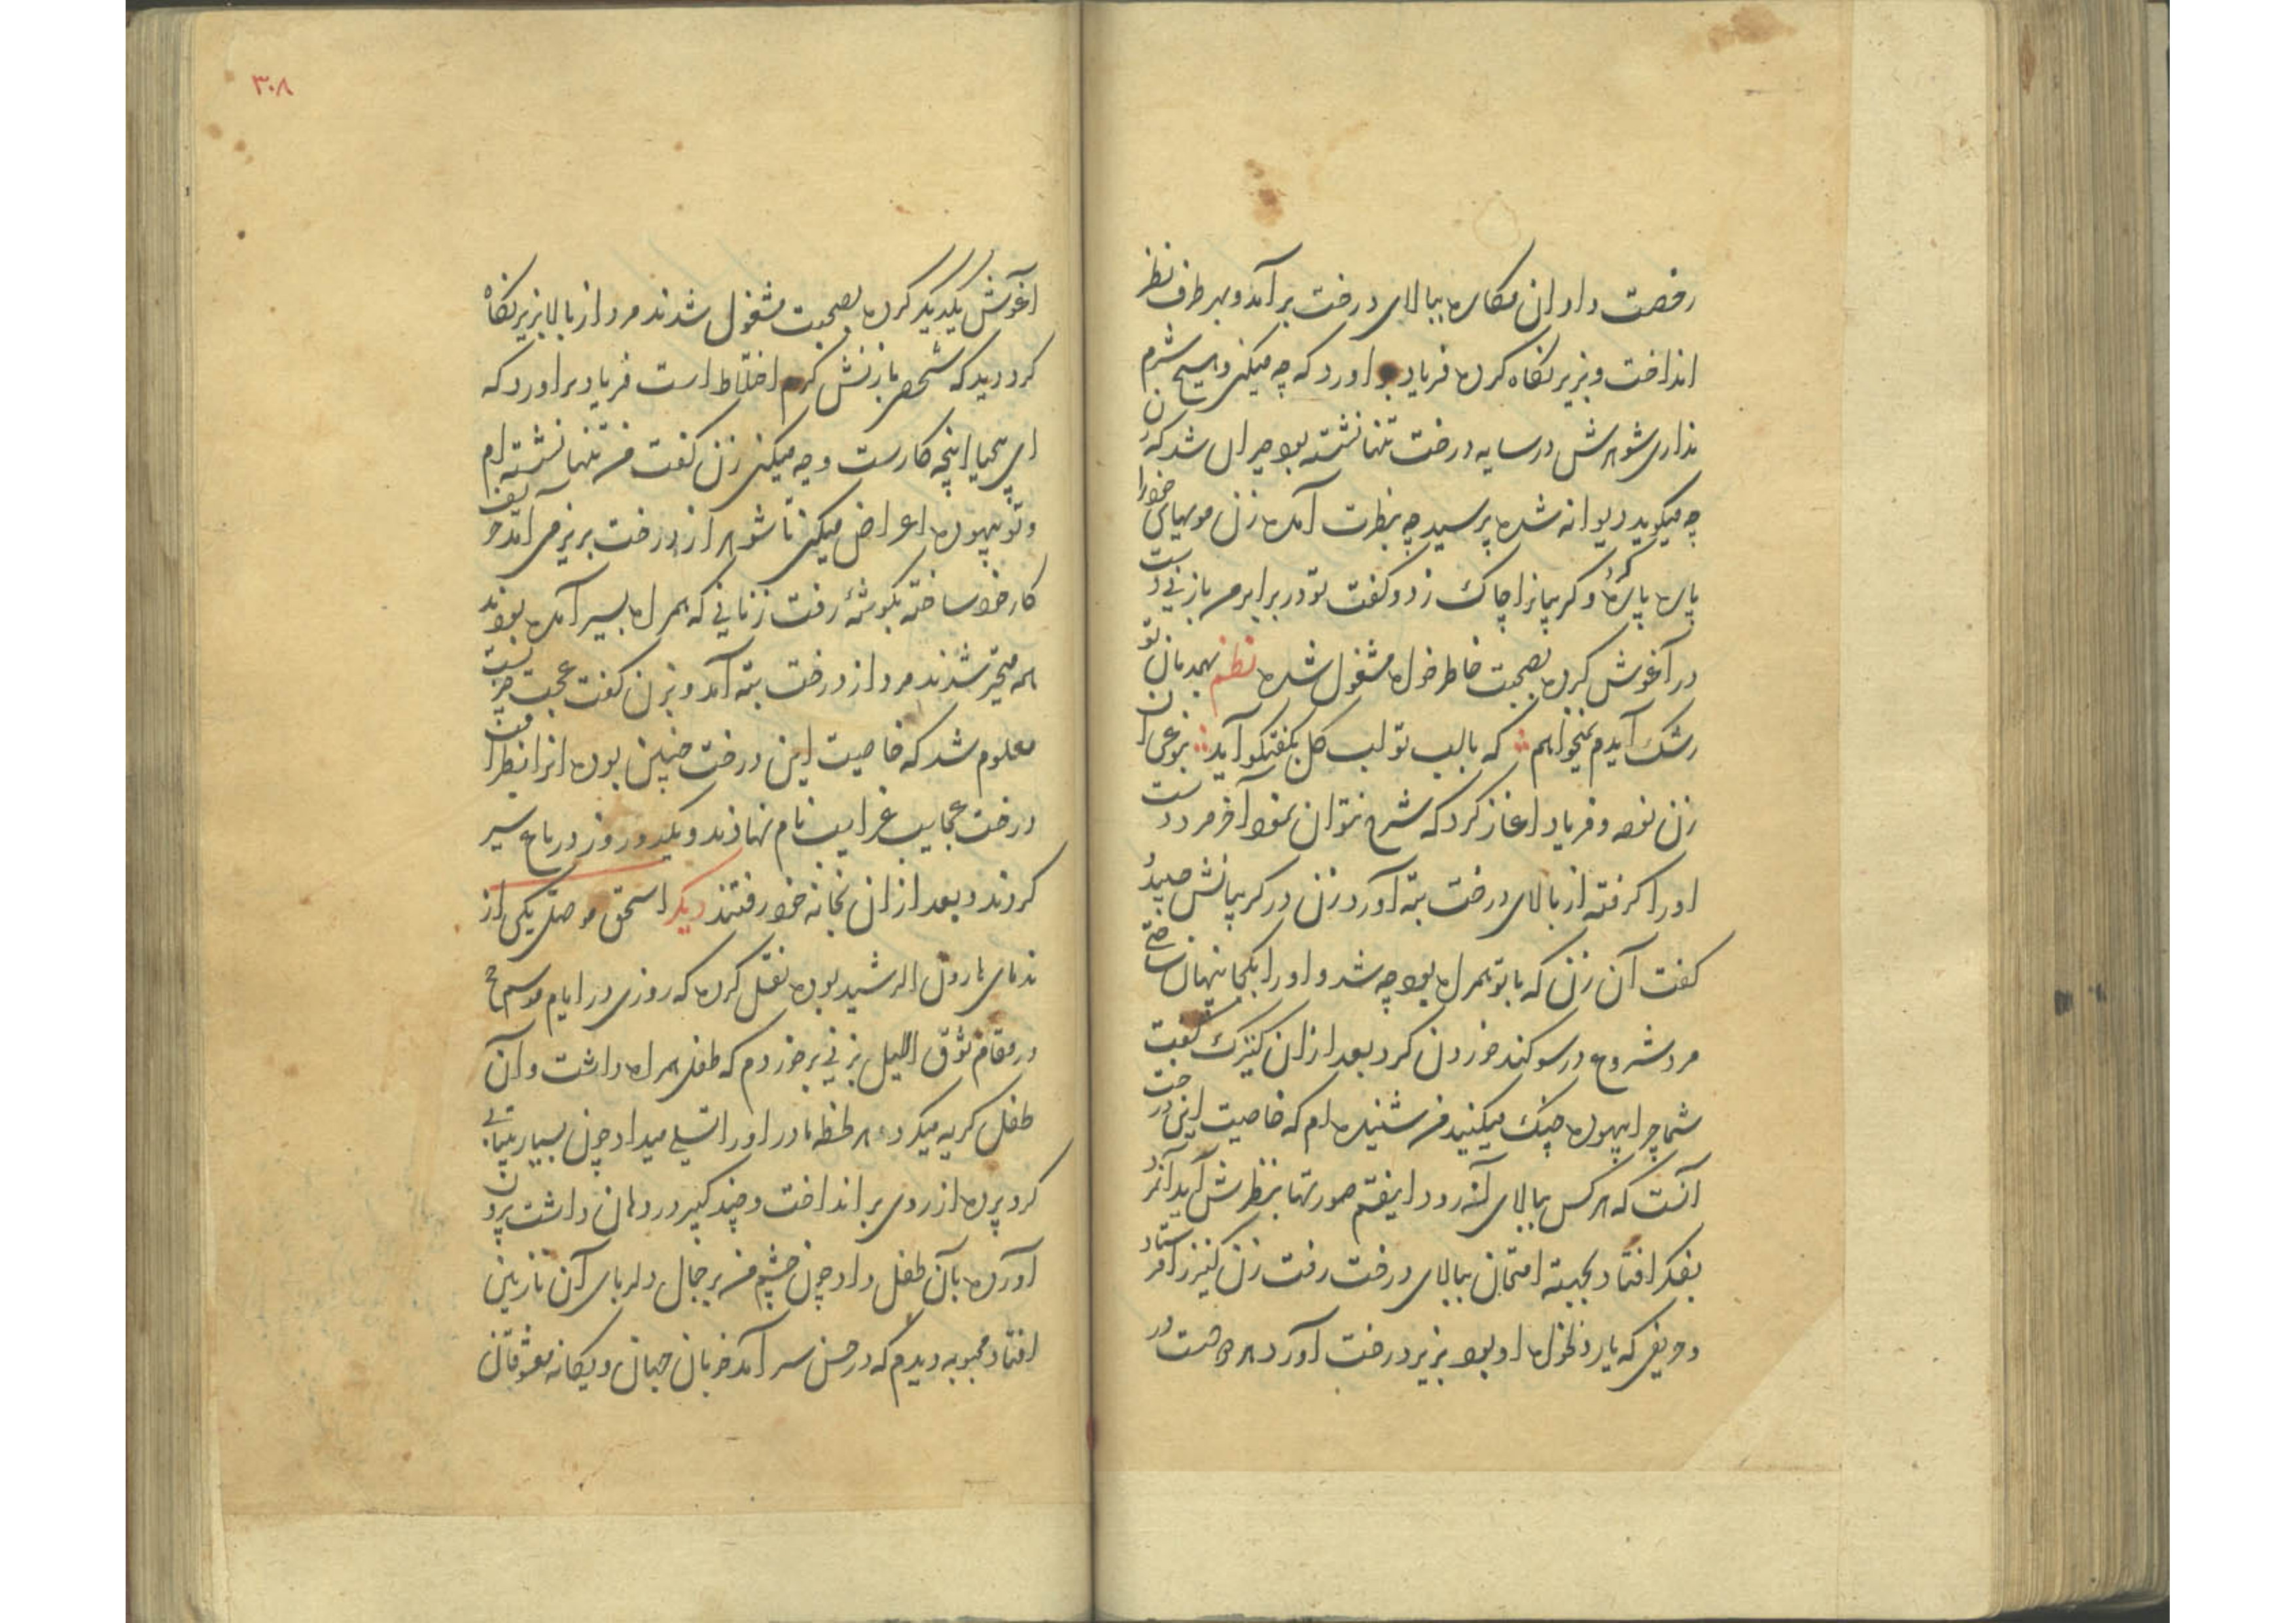 رخصت داد ان مکاره ببالای درخت بر آمد و بهر طرف نظر
انداخت و بزیر نکاه کرده فریاد بر اورد که چه میکنی و هیچ شرم
نداری شوهرش در سایه درخت تنها نشسته بود حیران شد که زن
چه میکوید دیوانه شده پرسید چه بنظرت آمده زن مویهای خود را
پاره پاره کرد و کریبانرا چاک زد و کفت تو در برابر من با زنی دست
در آغوش کرده بصحبت خاطرخواه مشغول شده نظم بهمدمان تو
رشک آیدم نمیخواهم که با لب تو لب کل بکفتکو آید بنوعی ان
زن نعره و فریاد اغاز کرد که شرح نتوان نمود آخر مرد دست
اورا کرفته از بالای درخت بته آورد زن در کریبانش چسپیده
کفت آن زن که با تو همراه بود چه شد و اورا بکجا پنهان ساختی
مرد شروع در سوکند خوردن کرد بعد از ان کنیزک کفت
شما چرا بیهوده جنک میکنید من شنیده ام که خاصیت این درخت
آنست که هر کس ببالای آن رود اینقسم صورتها بنظرش آید آنمرد
بفکر افتاد بجهته امتحان ببالای درخت رفت زن کنیز را فرستاد
و حریفی که یار دلخواه او بود بزیر درخت آورد هر دو دست در
۳۰۸
آغوش یکدیکر کرده بصحبت مشغول شدند مرد از بالا بزیر نکاه
کرد دید که شخصی با زنش کرم اختلاط است فریاد بر اورد که
ای بیحیا اینچه کارست و چه میکنی زن کفت من تنها نشسته ام
و تو بیهوده اعراض میکنی تا شوهر از درخت بزیر می آمد حریف
کار خود ساخته بکوشه رفت زنانی که همراه بسیر آمده بودند
همه متحیر شدند مرد از درخت بته آمد و بزن کفت عجبت چیزیست
معلوم شد که خاصیت این درخت چنین بوده انرا بنظر امتحان
درخت عجایب غرایب نام نهادند و یکدو روز در باغ سیر
کردند و بعد از ان بخانه خود رفتند دیکر اسحق موصلی یکی از
ندمای هارون الرشید بوده نقل کرده که روزی در ایام موسم حج
در مقام سوق اللیل بزنی برخوردم که طفلی همراه داشت و آن
طفل کریه میکرد هر لحظه مادر اورا تسلی میداد چون بسیار بیتابی
کرد پرده از روی بر انداخت و چند در دهان داشت برون
آورده بآن طفل داد چون چشم من بر جمال دلربای آن نازنین
افتاد محبوبه دیدم که در حسن سر آمد خوبان جهان و یکانه معشوقان